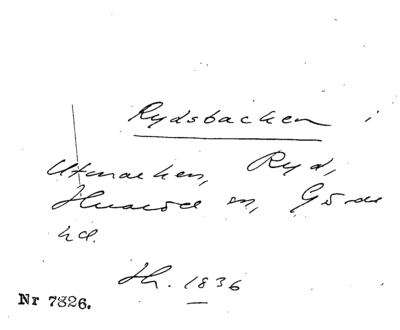 Rydsbacken i
Utmarken, Ryd,
Hvarsta sn, Göste
hd.
Hr. 1836
Nr 7826.